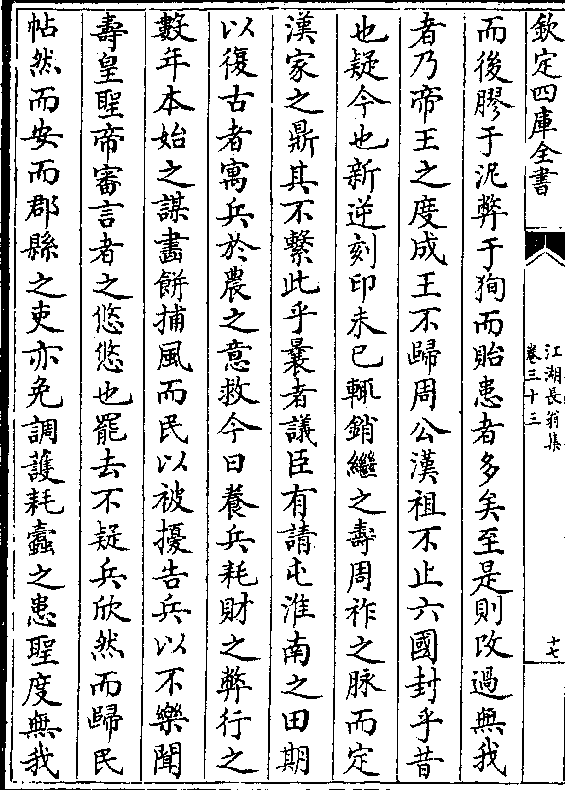 欽定四庫全書
江湖長翁集
卷三十三
十七
而後膠于泥弊于狥而貽患者多矣至是則改過無我
者乃帝王之度成王不歸周公漢祖不止六國封乎昔
也疑今也新逆刻印未已輒銷繼之壽周祚之脉而定
漢家之鼎其不繫此乎曩者議臣有請屯淮南之田期
以復古者寓兵於農之意救今日養兵耗財之弊行之
數年本始之謀畵餅捕風而民以被擾告兵以不樂聞
壽皇聖帝審言者之悠悠也罷去不疑兵欣然而歸民
帖然而安而郡縣之吏亦免調護耗蠧之患聖度無我